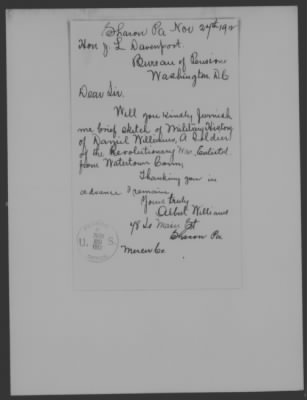 Sharon Pa Nov 27th 191
Hon J. L Davenport.
Bureau of Pensions
Washington D.C
Dear Sir.
Will you kindly furnish
me brief sketch of Military History
of Daniel Williams, A Soldier
of the Revolutionary War. Enlisted
from Watertown Conn,
Thanking you in
advance I remain,
Yours truly
Albert Williams
78 So Main St
Sharon Pa
Mercer Co.
U. S.